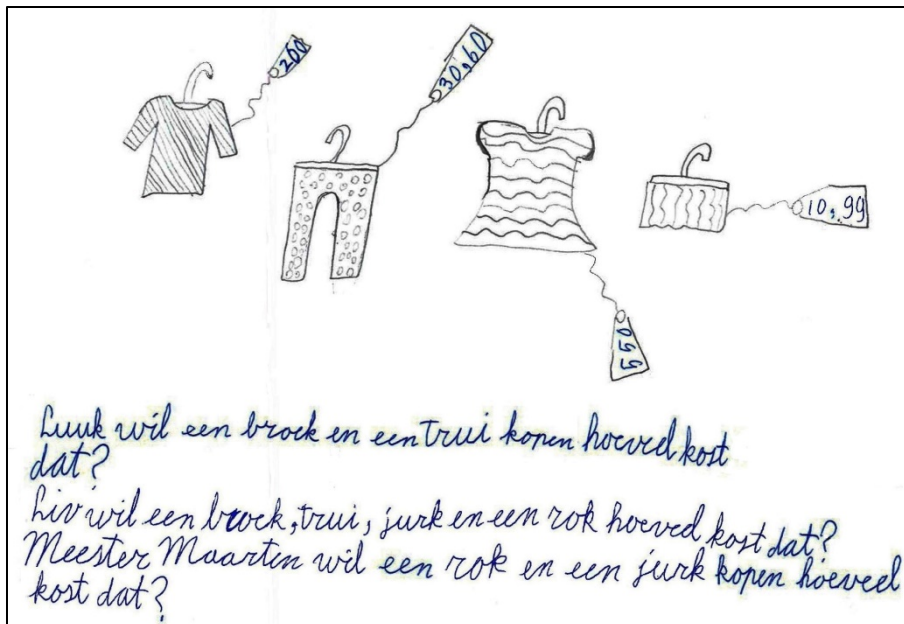 200
30,60
550
10,99
Luuk wil een broek en een trui kopen hoeveel kost
dat?
Liv wil een broek, trui, jurk en een rok hoeveel kost dat?
Meester Maarten wil een rok en een jurk kopen hoeveel
kost dat?